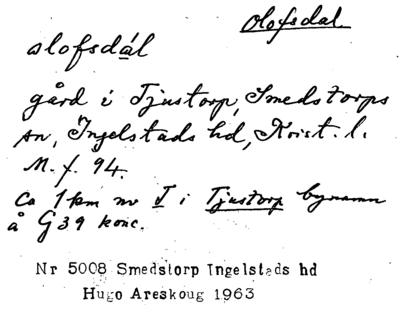 Olofsdal
olofsdál
gård i Tjustorp, Smedstorps
sn, Ingelstads hd, Krist. l.
M. f. 94.
Ca 1 km nv I i Tjustorp bynamn
å G 39 konc.
Nr 5008 Smedstorp Ingelstads hd
Hugo Areskoug 1963